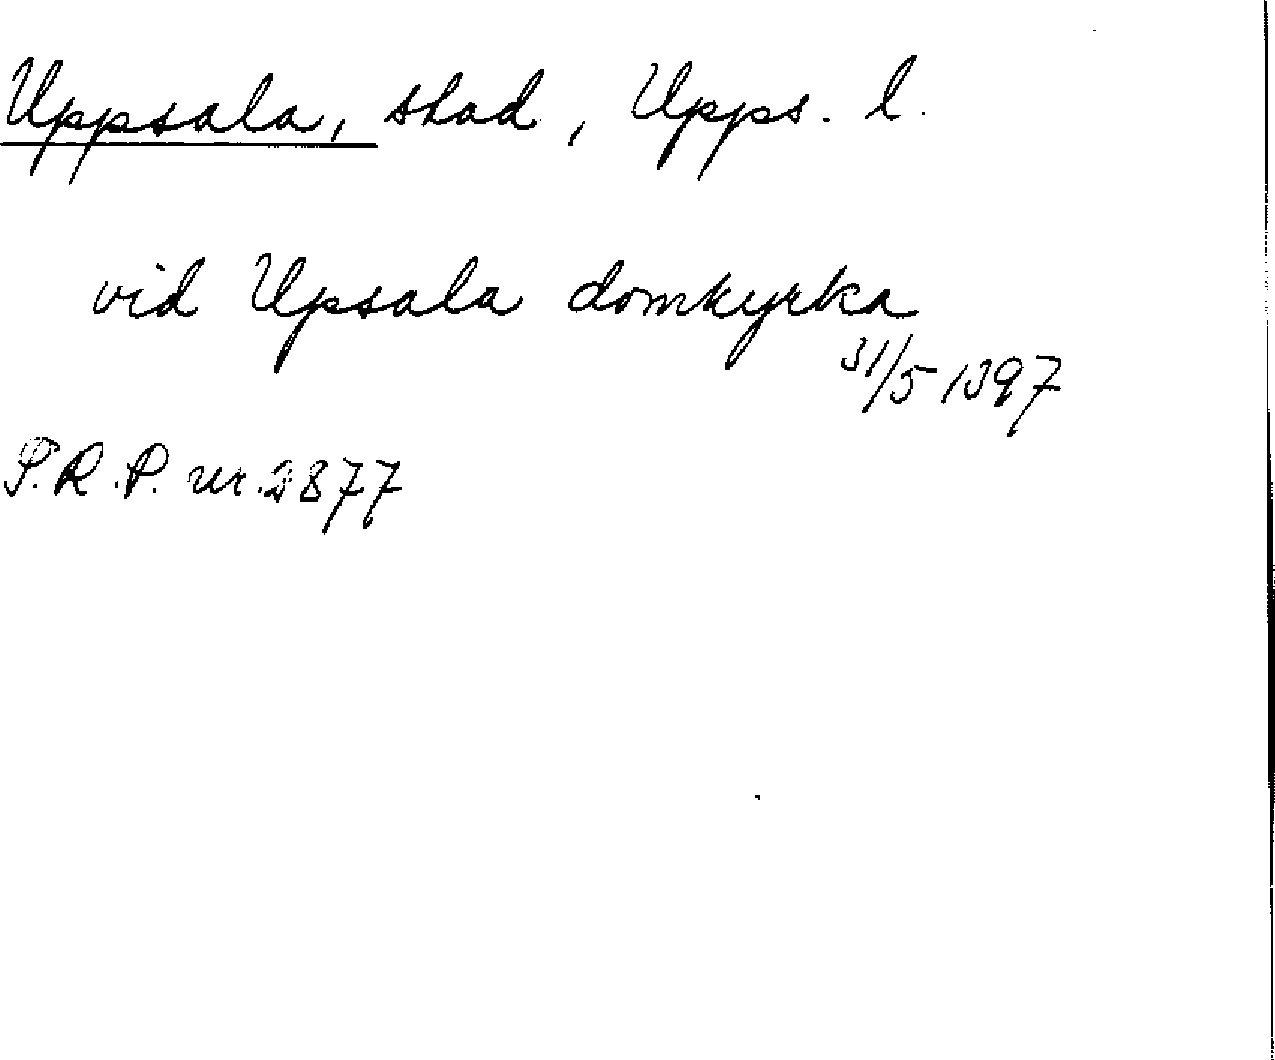 Uppsala, stad, Upps. l.
vid Upsala domkyrka
31/5 1397
S.R.P. nr. 2877